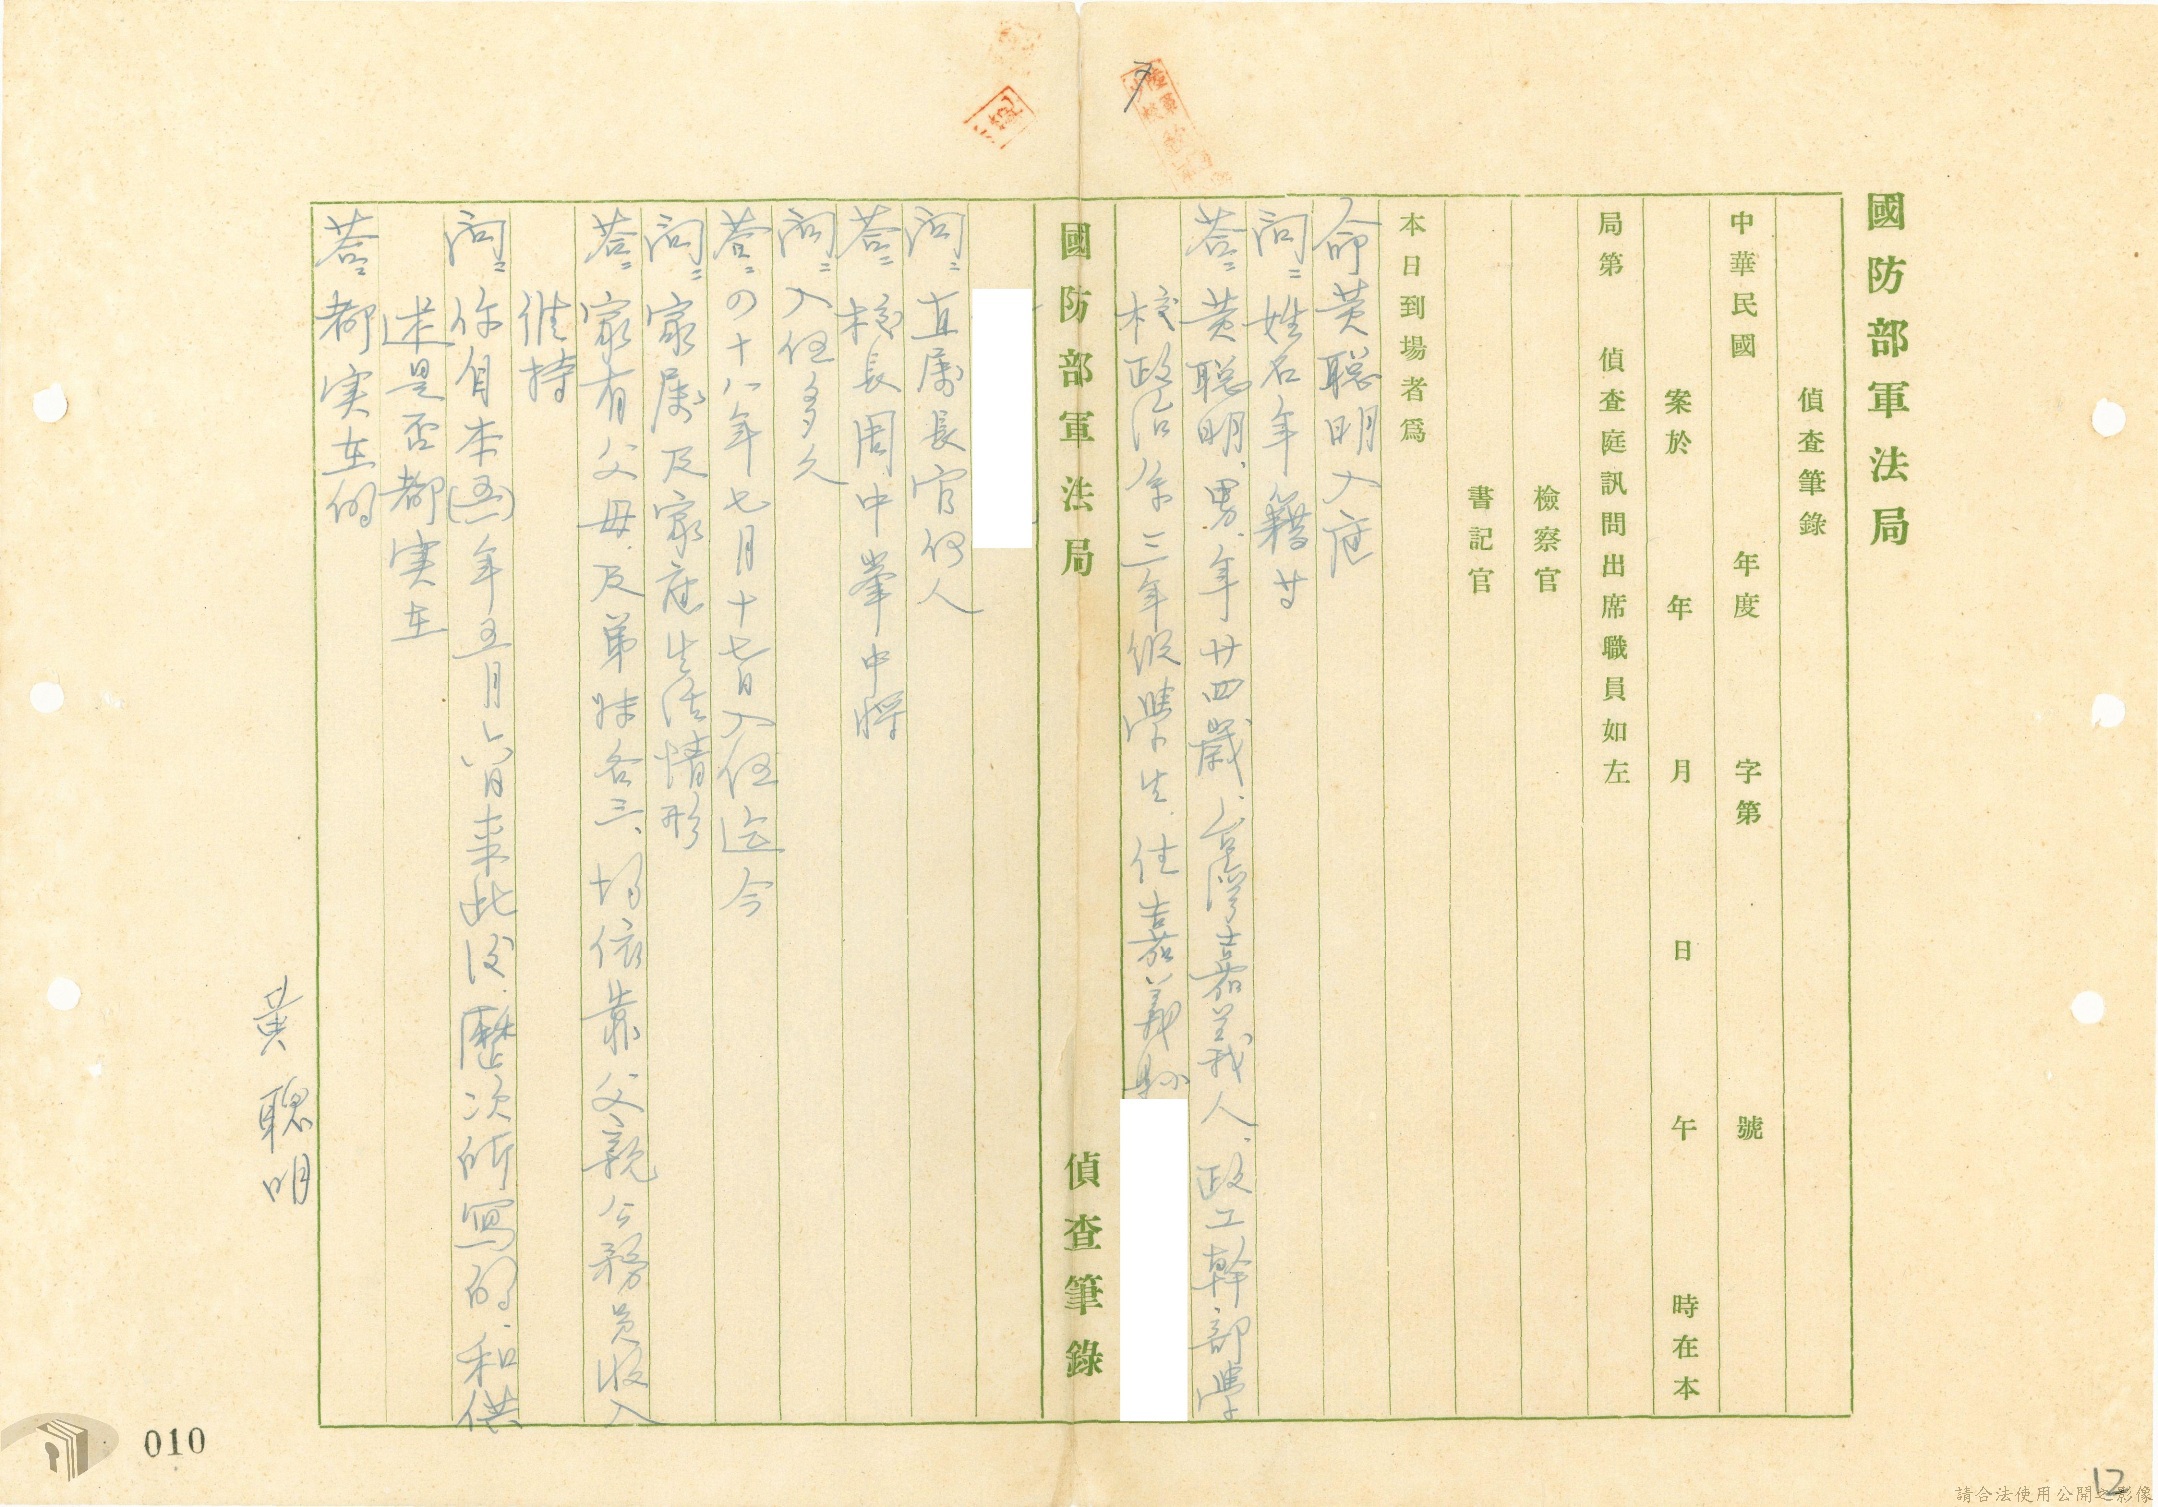 國防部軍法局
偵查筆錄
中華民國 年度 字第 號
案於 年 月 日 午 時在本
局第 偵查庭訊問出席職員如左
檢察官
書記官
本日到場者爲
命黃聰明入庭
問：姓名年籍廿
答：黃聰明、男、年廿四歲、台灣嘉義人、政工幹部學
校政治系三年級學生、住嘉義縣
國防部軍法局 偵查筆錄
問：直屬長官何人
答：校長周中峯中將
問：入伍多久
答：四十八年七月十七日入伍迄今
問：家屬及家庭生活情形
答：家有父母、及弟妹各三、均依靠父親公務員收入
維持
問：你自本(五一)年五月六日來此後、歷次所寫的、和供
述是否都実在
答：都実在的
黃聰明
010
12
請合法使用公開之影像